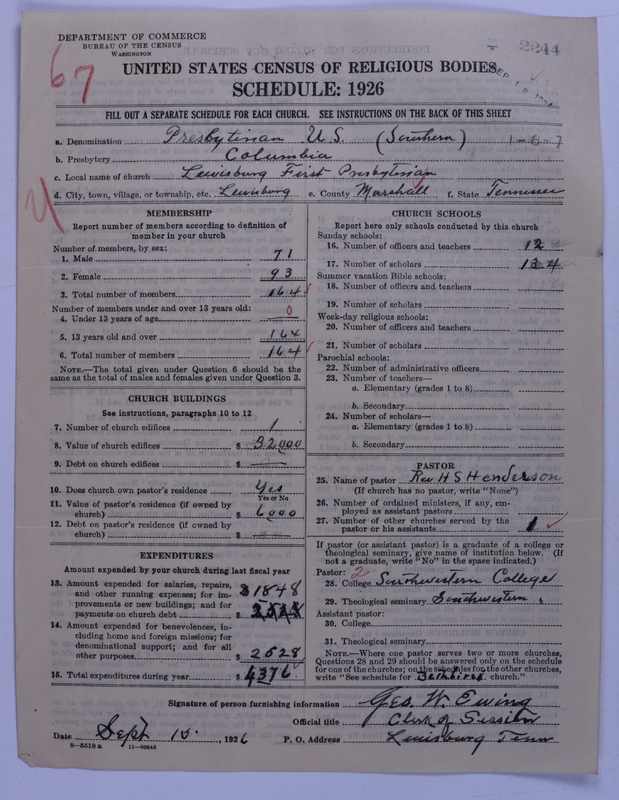 DEPARTMENT OF COMMERCE
BUREAU OF THE CENSUS
WASHINGTON
2244
67
UNITED STATES CENSUS OF RELIGIOUS BODIES
SCHEDULE: 1926
FILL OUT A SEPARATE SCHEDULE FOR EACH CHURCH. SEE INSTRUCTIONS ON THE BACK OF THIS SHEET
a. Denomination Presbyterian U.S. (Southern) 1-6-7
b. Presbytery Columbia
c. Local name of church Lewisburg First Presbyterian
d. City, town, village, or township, etc. Lewisburg e. County Marshall f. State Tennessee
MEMBERSHIP
Report number of members according to definition of
member in your church
Number of members, by sex:
1. Male 71
2. Female 93
3. Total number of members 164
Number of members under and over 13 years old:
4. Under 13 years of age 0
5. 13 years old and over 164
6. Total number of members 164
NOTE.—The total given under Question 6 should be the
same as the total of males and females given under Question 3.
CHURCH BUILDINGS
See instructions, paragraphs 10 to 12
7. Number of church edifices 1
8. Value of church edifices $ 32000
9. Debt on church edifices $
10. Does church own pastor's residence Yes
Yes or No
11. Value of pastor's residence (if owned by
church) $ 6000
12. Debt on pastor's residence (if owned by
church) $
EXPENDITURES
Amount expended by your church during last fiscal year
13. Amount expended for salaries, repairs,
and other running expenses; for im-
provements or new buildings; and for
payments on church debt $1848
14. Amount expended for benevolences, in-
cluding home and foreign missions; for
denominational support; and for all
other purposes $ 2528
15. Total expenditures during year $ 4376
CHURCH SCHOOLS
Report here only schools conducted by this church
Sunday schools:
16. Number of officers and teachers 12
17. Number of scholars 134
Summer vacation Bible schools:
18. Number of officers and teachers
19. Number of scholars
Week-day religious schools:
20. Number of officers and teachers
21. Number of scholars
Parochial schools:
22. Number of administrative officers
23. Number of teachers—
a. Elementary (grades 1 to 8)
b. Secondary
24. Number of scholars—
a. Elementary (grades 1 to 8)
b. Secondary
PASTOR
25. Name of pastor Rev H S Henderson
(If church has no pastor, write "None")
26. Number of ordained ministers, if any, em-
ployed as assistant pastors
27. Number of other churches served by the
pastor or his assistants 1
If pastor (or assistant pastor) is a graduate of a college or
theological seminary, give name of institution below. (If
not a graduate, write "No" in the space indicated.)
Pastor: 2
28. College Southwestern College
29. Theological seminary Southwestern "
Assistant pastor:
30. College
31. Theological seminary
NOTE.—Where one pastor serves two or more churches,
Questions 28 and 29 should be answered only on the schedule
for one of the churches; on the schedules for the other churches,
write "See schedule for church."
Signature of person furnishing information Geo. W. Ewing
Official title Clerk of Session
Date Sept 15, 1926 P. O. Address Lewisburg Tenn
8—5518 a